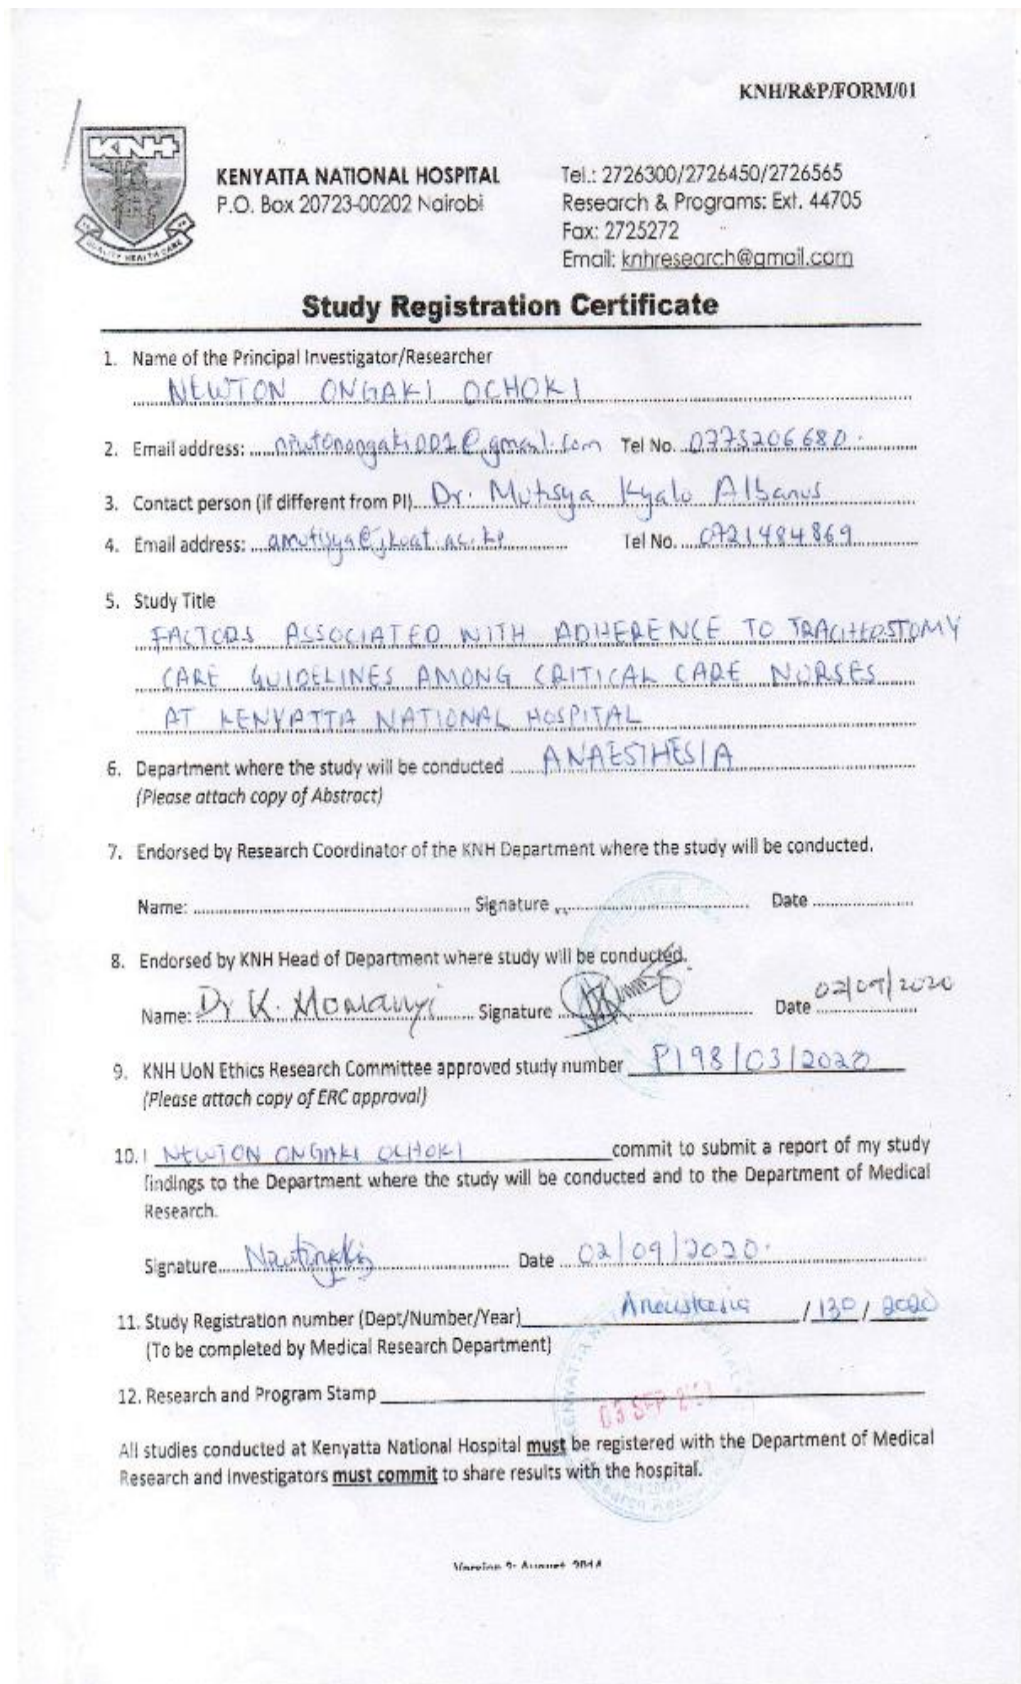 KNH/R&P/FORM/01
KNH
QUALITY HEALTH CARE
KENYATTA NATIONAL HOSPITAL
P.O. Box 20723-00202 Nairobi
Tel.: 2726300/2726450/2726565
Research & Programs: Ext. 44705
Fax: 2725272
Email: knhresearch@gmail.com
Study Registration Certificate
1. Name of the Principal Investigator/Researcher
NEWTON ONGAKI OCHOKI
2. Email address: newtonongaki001@gmail.com Tel No. 0775206680
3. Contact person (if different from PI) Dr. Mutisya Kyalo Albanus
4. Email address: amutisya@jkuat.ac.ke Tel No. 0721484869
5. Study Title
FACTORS ASSOCIATED WITH ADHERENCE TO TRACHEOSTOMY
CARE GUIDELINES AMONG CRITICAL CARE NURSES
AT KENYATTA NATIONAL HOSPITAL
6. Department where the study will be conducted ANAESTHESIA
(Please attach copy of Abstract)
7. Endorsed by Research Coordinator of the KNH Department where the study will be conducted.
Name: Signature Date
8. Endorsed by KNH Head of Department where study will be conducted.
Name: Dr K. Momanyi Signature Date 02/09/2020
9. KNH UoN Ethics Research Committee approved study number P198/03/2020
(Please attach copy of ERC approval)
10. I NEWTON ONGAKI OCHOKI commit to submit a report of my study
findings to the Department where the study will be conducted and to the Department of Medical
Research.
Signature Date 02/09/2020
11. Study Registration number (Dept/Number/Year) Anaesthesia / 130 / 2020
(To be completed by Medical Research Department)
12. Research and Program Stamp
03 SEP
All studies conducted at Kenyatta National Hospital must be registered with the Department of Medical
Research and Investigators must commit to share results with the hospital.
Version 2: August, 2014